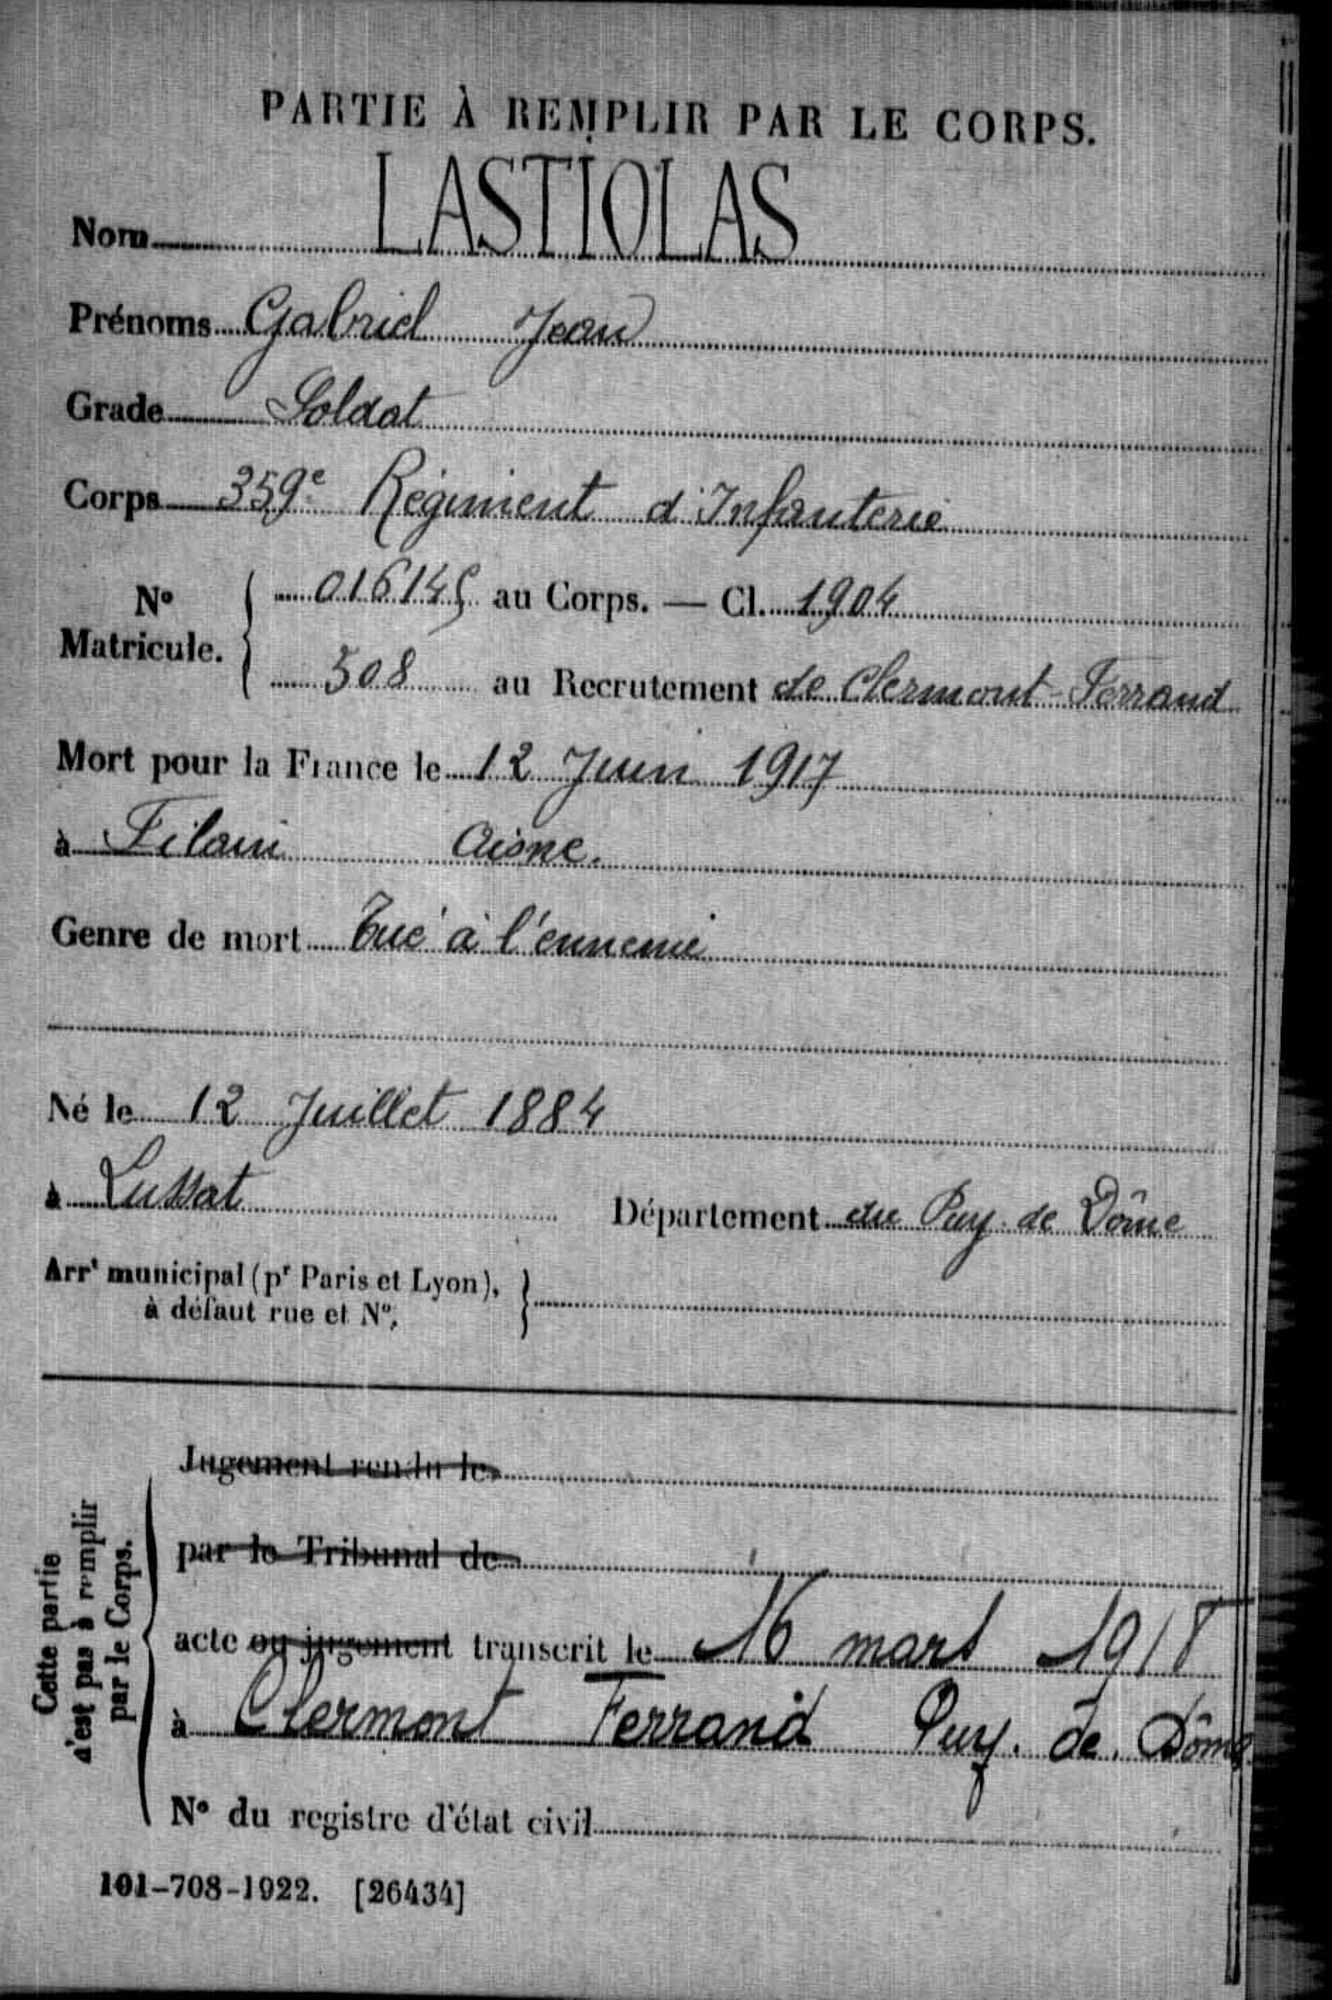 PARTIE À REMPLIR PAR LE CORPS.
Nom LASTIOLAS
Prénoms Gabriel Jean
Grade Soldat
Corps 359e Régiment d'Infanterie
N° Matricule. 016145 au Corps. — Cl. 1904
508 au Recrutement de Clermont-Ferrand
Mort pour la France le 12 Juin 1917
à Filain Aisne.
Genre de mort Tué à l'ennemi
Né le 12 Juillet 1884
à Lussat Département du Puy de Dôme
Arrt municipal (pr Paris et Lyon),
à défaut rue et N°.
Cette partie
n'est pas à remplir
par le Corps.
Jugement rendu le
par le Tribunal de
acte ou jugement transcrit le 16 mars 1918
à Clermont Ferrand Puy. de. Dôme
N° du registre d'état civil
101-708-1922. [26434]